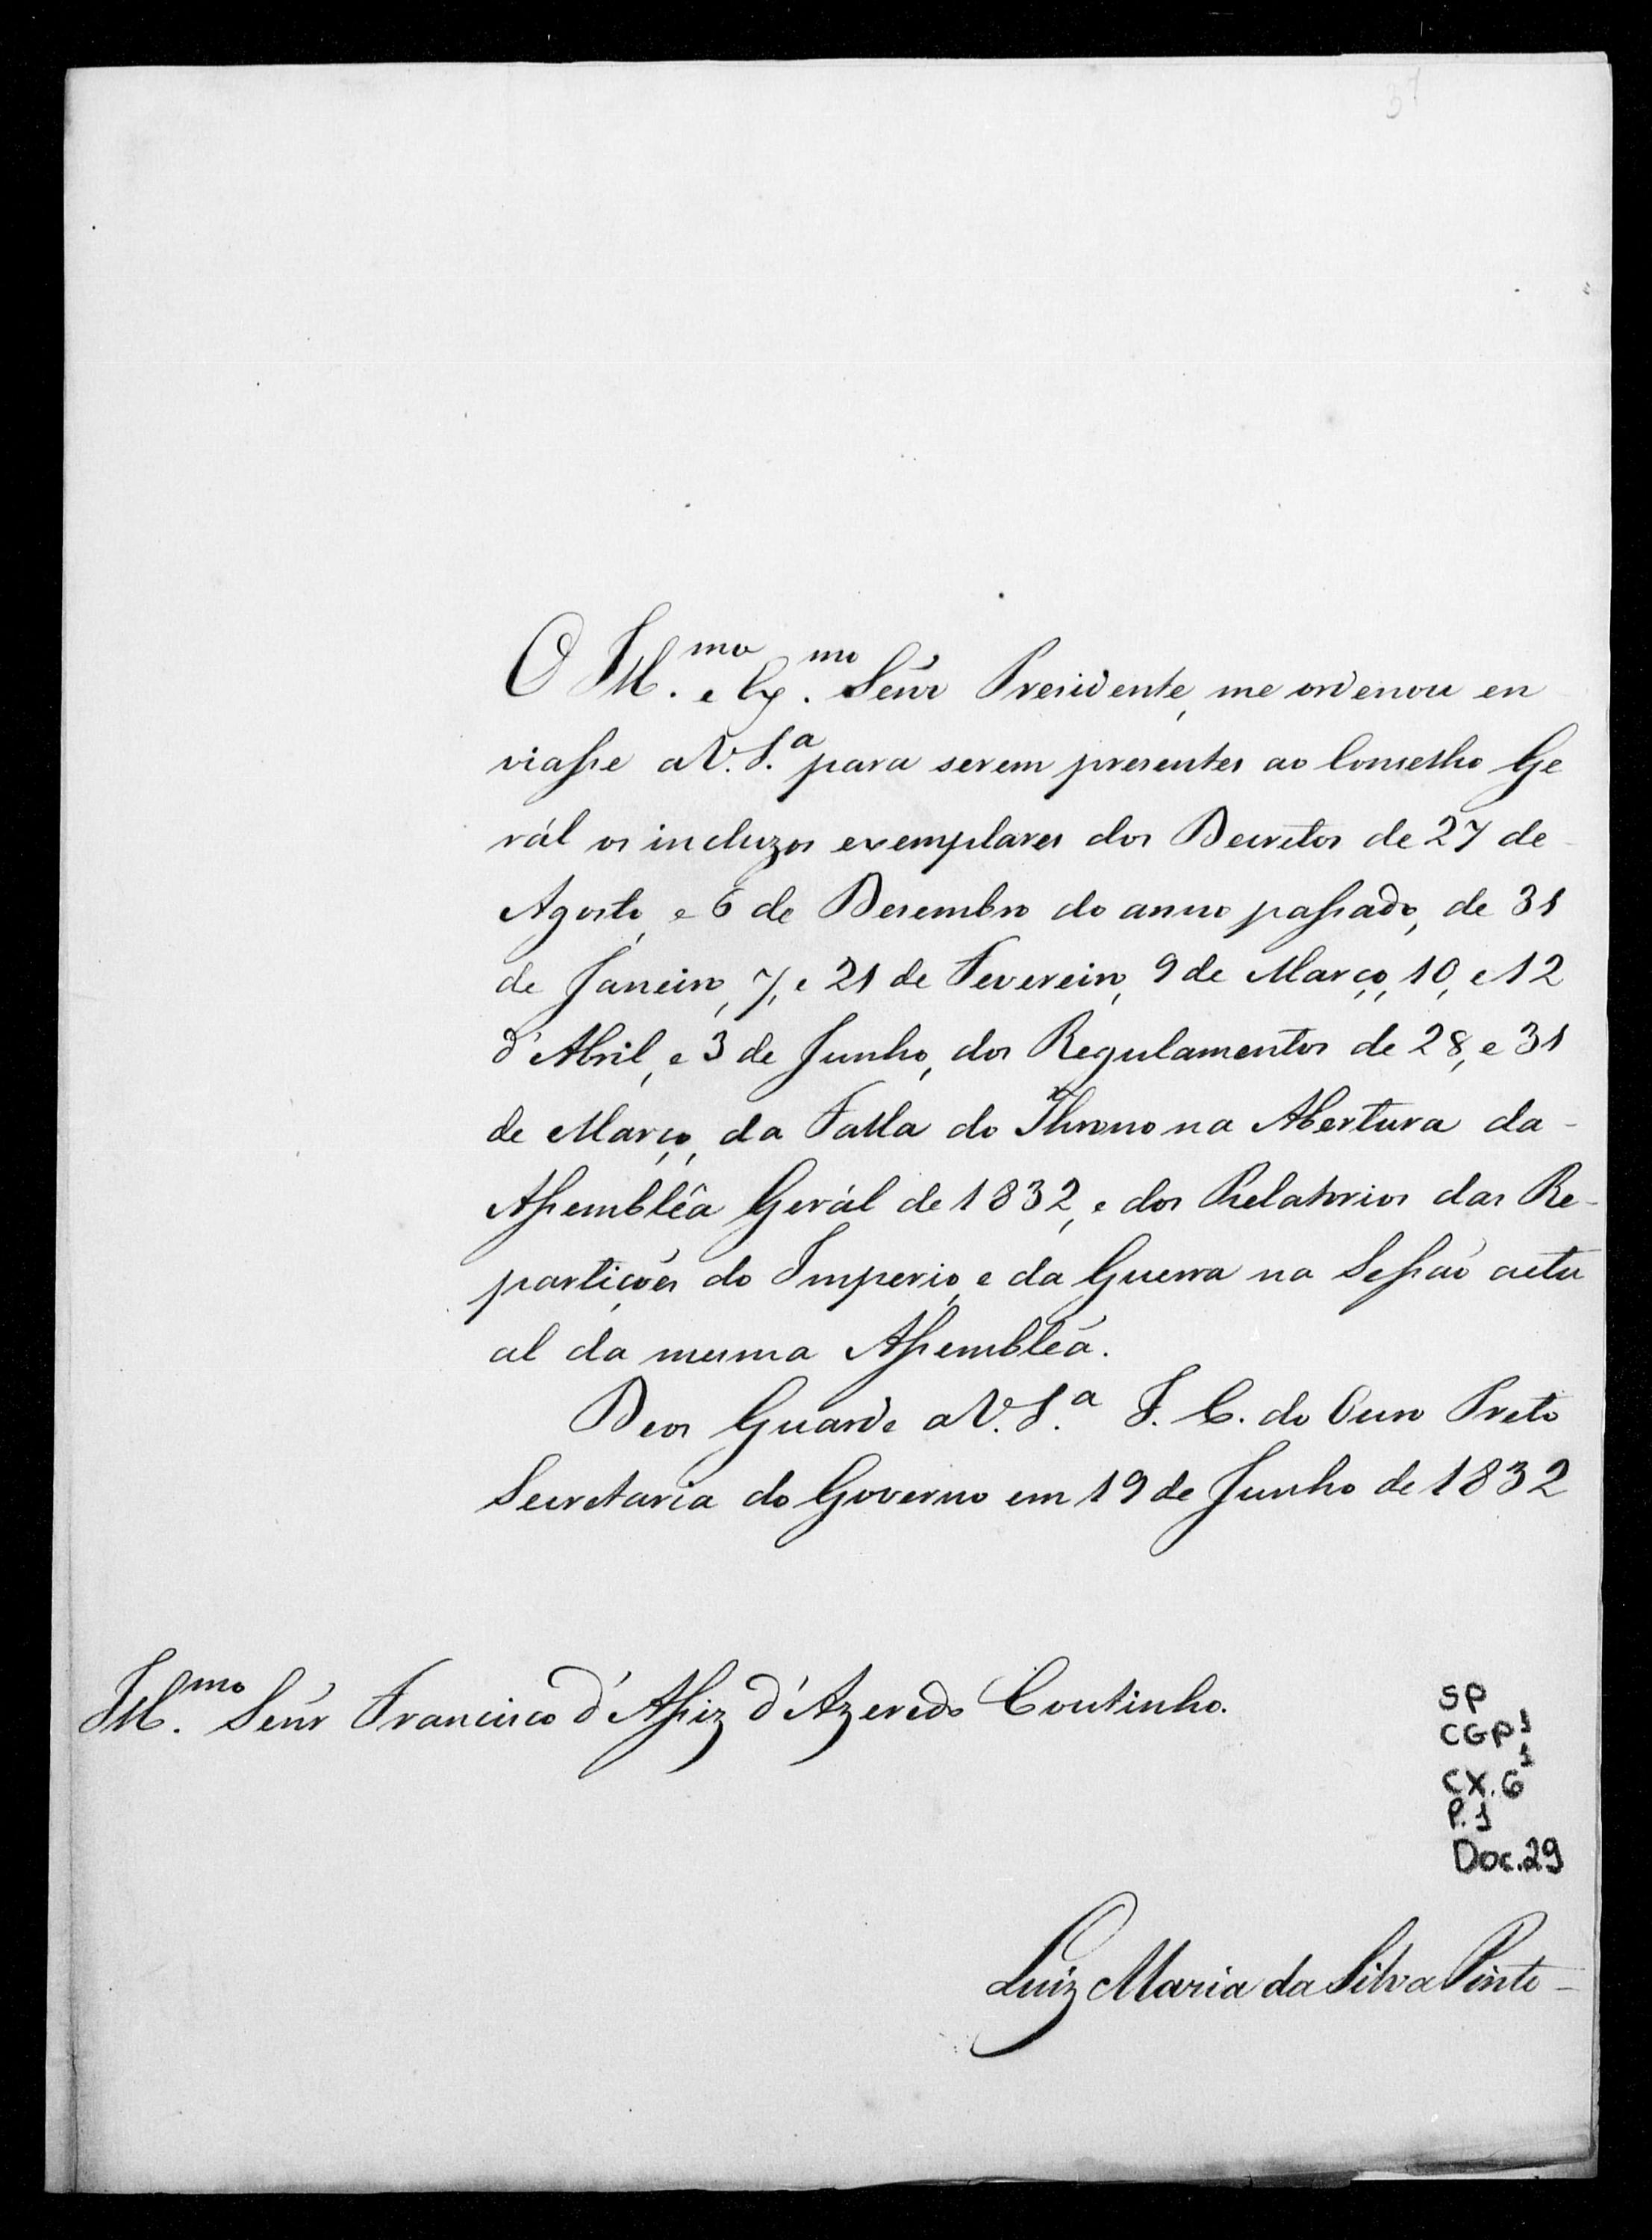 O Ill.mo e Ex.mo Senr Presidente, me ordenou en
viasse a V. S.a para serem presentes ao Conselho Ge
rál os incluzos exemplares dos Decretos de 27 de
Agosto, e 6 de Desembro do anno passado, de 31
de Janeiro, 7, e 21 de Fevereiro, 9 de Março, 10, e 12
d'Abril, e 3 de Junho, dos Regulamentos de 28, e 31
de Março, da Falla do Throno na Abertura da
Assemblêa Gerál de 1832, e dos Relatorios das Re-
partições do Imperio, e da Guerra na Sessão actu
al da mesma Assembléa.
Deos Guarde a V. S.a I. C. do Ouro Preto
Secretaria do Governo em 19 de Junho de 1832
Ill.mo Senr Francisco d'Assiz d'Azeredo Coutinho.
SP
CGP1
CX. 6
P. 1
Doc. 29
Luiz Maria da Silva Pinto